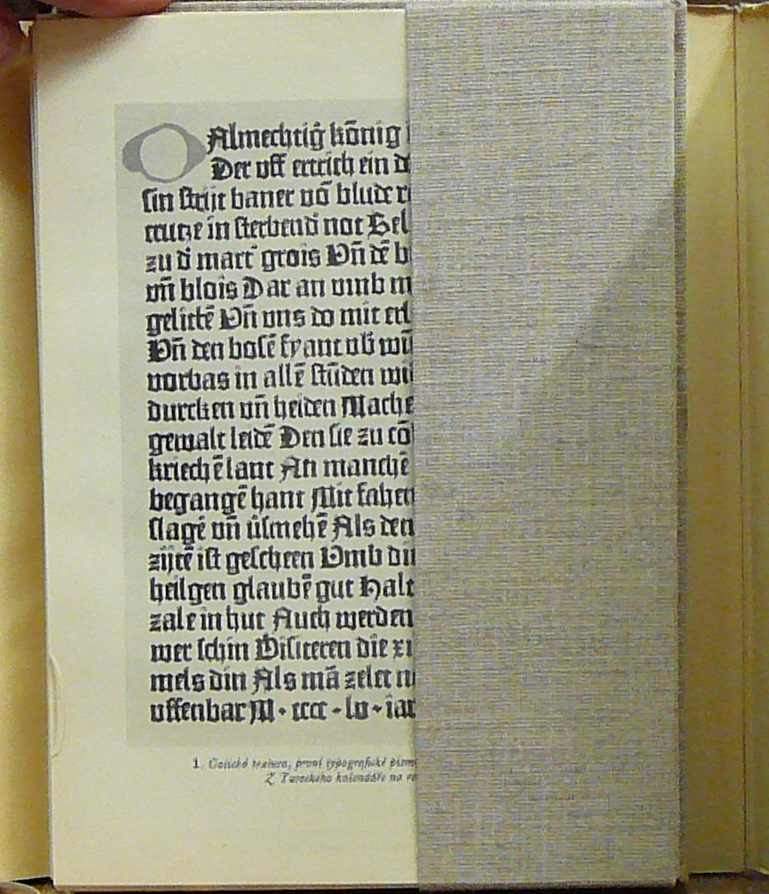 O Almechtig̃ kõnig
Der vff ertrich ein
sin strijt baner võ blude
crutze in sterbend̃ not Hel
zu d̃ mart̃ grois Vñ dẽ
vñ blois Dar an vmb m
gelittẽ Vñ vns do mit erl
Vñ den bosẽ fyant vb̃
vorbas in allẽ stũden
durcken vñ heiden Mache
gewalt leidẽ Den sie zu cõ
kriechẽ lant An manchẽ
begangẽ hant Mit fahen
slagẽ vñ v̊smehẽ Als den
zijtẽ ist gescheen Vmb
heilgen glaubẽ gut Halt
zale in hut Auch werden
wer schin Disiteren die
mels din Als mã zelet
vffenbar M · cccc · lv · iar
1. Gotická textura, první typografické písmo
Z Tureckého kalendáře na